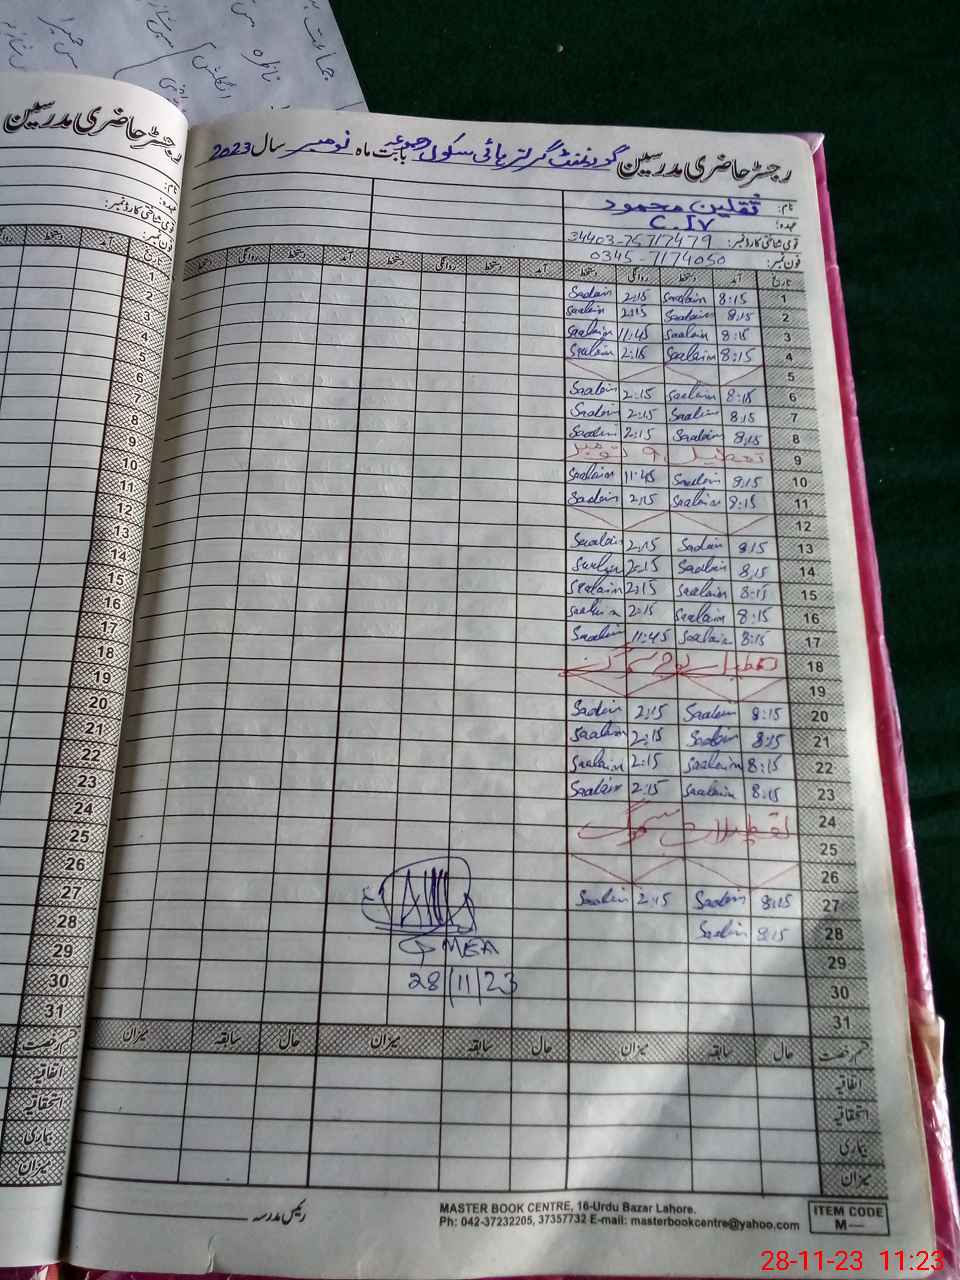 رجسٹر حاضری مدرسین
رجسٹر حاضری مدرسین گورنمنٹ گرلز ہائی سکول بابت ماہ نومبر سال 2023
نام: ثقلین محمود
عہدہ: C.IV
قومی شناختی کارڈ نمبر: 34403-75717479
فون نمبر: 0345-7174050
تاریخ آمد دستخط روانگی دستخط آمد دستخط روانگی دستخط آمد دستخط روانگی دستخط
1 8:15 Saqlain 2:15 Saqlain
2 8:15 Saqlain 2:15 Saqlain
3 8:15 Saqlain 11:45 Saqlain
4 8:15 Saqlain 2:15 Saqlain
5
6 8:15 Saqlain 2:15 Saqlain
7 8:15 Saqlain 2:15 Saqlain
8 8:15 Saqlain 2:15 Saqlain
9 تعطیل 9 نومبر
10 8:15 Saqlain 11:45 Saqlain
11 8:15 Saqlain 2:15 Saqlain
12
13 8:15 Saqlain 2:15 Saqlain
14 8:15 Saqlain 2:15 Saqlain
15 8:15 Saqlain 2:15 Saqlain
16 8:15 Saqlain 2:15 Saqlain
17 8:15 Saqlain 11:45 Saqlain
18 تعطیل بوجہ سموگ
19
20 8:15 Saqlain 2:15 Saqlain
21 8:15 Saqlain 2:15 Saqlain
22 8:15 Saqlain 2:15 Saqlain
23 8:15 Saqlain 2:15 Saqlain
24 تعطیلات سموگ
25
26
27 8:15 Saqlain 2:15 Saqlain
28 8:15 Saqlain
29
30
31
MEA
28/11/23
قسم رخصت حال سابقہ میزان حال سابقہ میزان حال سابقہ میزان
اتفاقیہ
استحقاقیہ
بیماری
میزان
رئیس مدرسہ
MASTER BOOK CENTRE, 16-Urdu Bazar Lahore.
Ph: 042-37232205, 37357732 E-mail: masterbookcentre@yahoo.com
ITEM CODE
M—
28-11-23 11:23